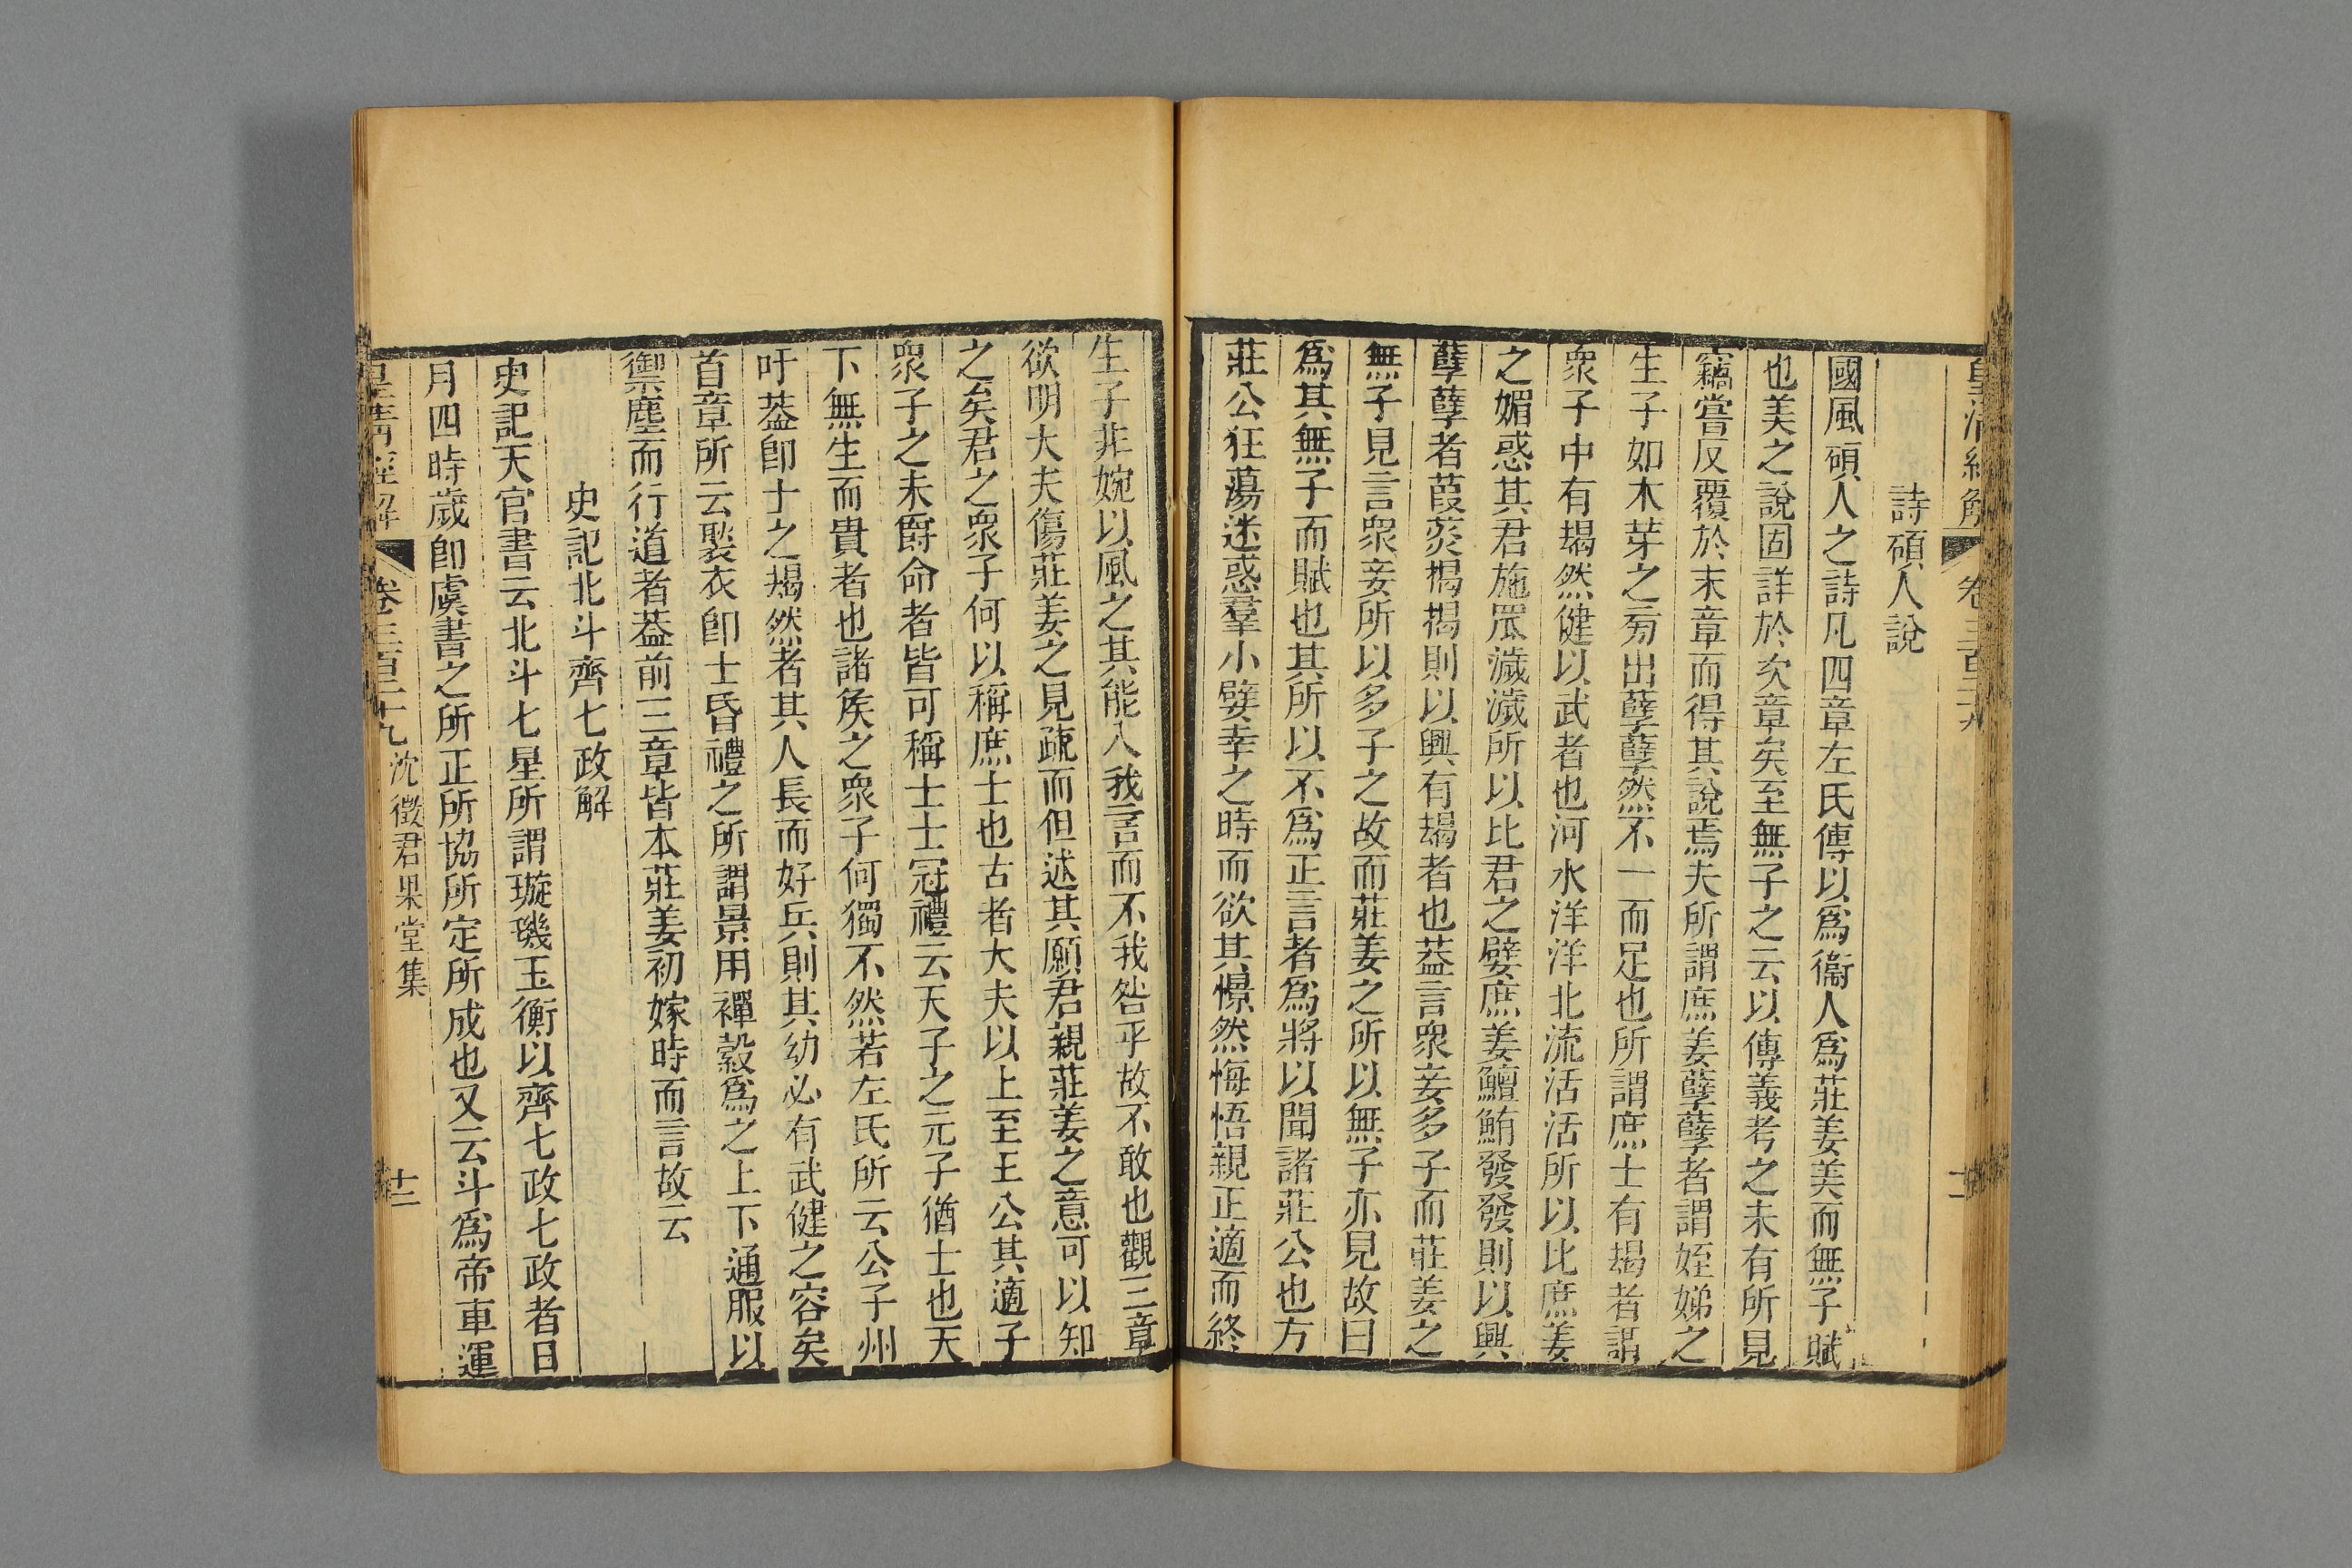 皇清經解 卷三百二十九
詩碩人說
國風碩人之詩凡四章左氏傳以爲衞人爲莊姜美而無子賦
也美之說固詳於次章矣至無子之云以傳義考之未有所見
竊嘗反覆於末章而得其說焉夫所謂庶姜孽孽者謂姪娣之
生子如木芽之旁出孽孽然不一而足也所謂庶士有朅者謂
衆子中有朅然健以武者也河水洋洋北流活活所以比庶姜
之媚惑其君施罛濊濊所以比君之嬖庶姜鱣鮪發發則以興
孽孽者葭菼揭揭則以興有朅者也葢言衆妾多子而莊姜之
無子見言衆妾所以多子之故而莊姜之所以無子亦見故曰
爲其無子而賦也其所以不爲正言者爲將以聞諸莊公也方
莊公狂蕩迷惑羣小嬖幸之時而欲其憬然悔悟親正適而終
生子非婉以風之其能入我言而不我咎乎故不敢也觀三章
欲明大夫傷莊姜之見疏而但述其願君親莊姜之意可以知
之矣君之衆子何以稱庶士也古者大夫以上至王公其適子
衆子之未爵命者皆可稱士士冠禮云天子之元子猶士也天
下無生而貴者也諸矦之衆子何獨不然若左氏所云公子州
吁葢卽士之朅然者其人長而好兵則其幼必有武健之容矣
首章所云褧衣卽士昏禮之所謂景用襌縠爲之上下通服以
禦塵而行道者葢前三章皆本莊姜初嫁時而言故云
史記北斗齊七政解
史記天官書云北斗七星所謂璇璣玉衡以齊七政七政者日
月四時歲卽虞書之所正所協所定所成也又云斗爲帝車運
皇清經解 卷三百二十九 沈徵君果堂集 十二